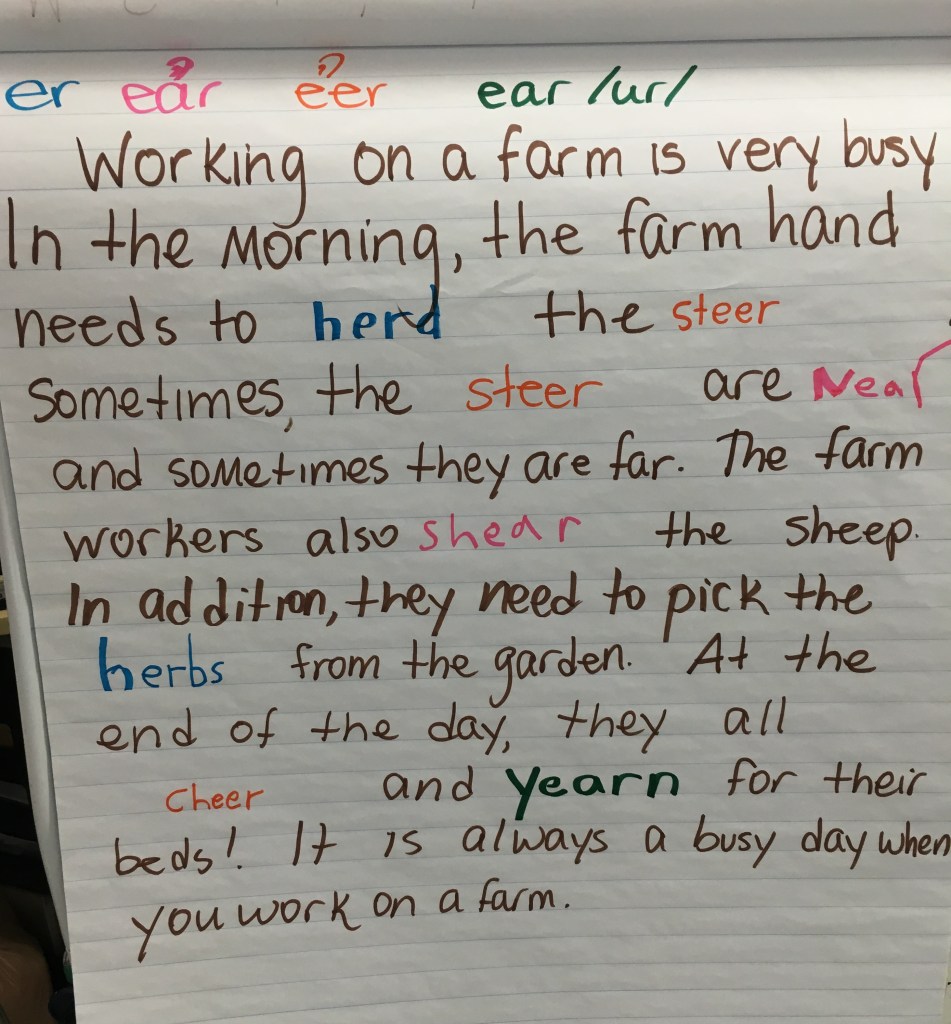 er ear eer ear /ur/
Working on a farm is very busy
In the Morning, the farm hand
needs to herd the steer
Sometimes, the steer are Near
and sometimes they are far. The farm
workers also shear the sheep.
In addition, they need to pick the
herbs from the garden. At the
end of the day, they all
cheer and yearn for their
beds! It is always a busy day when
you work on a farm.